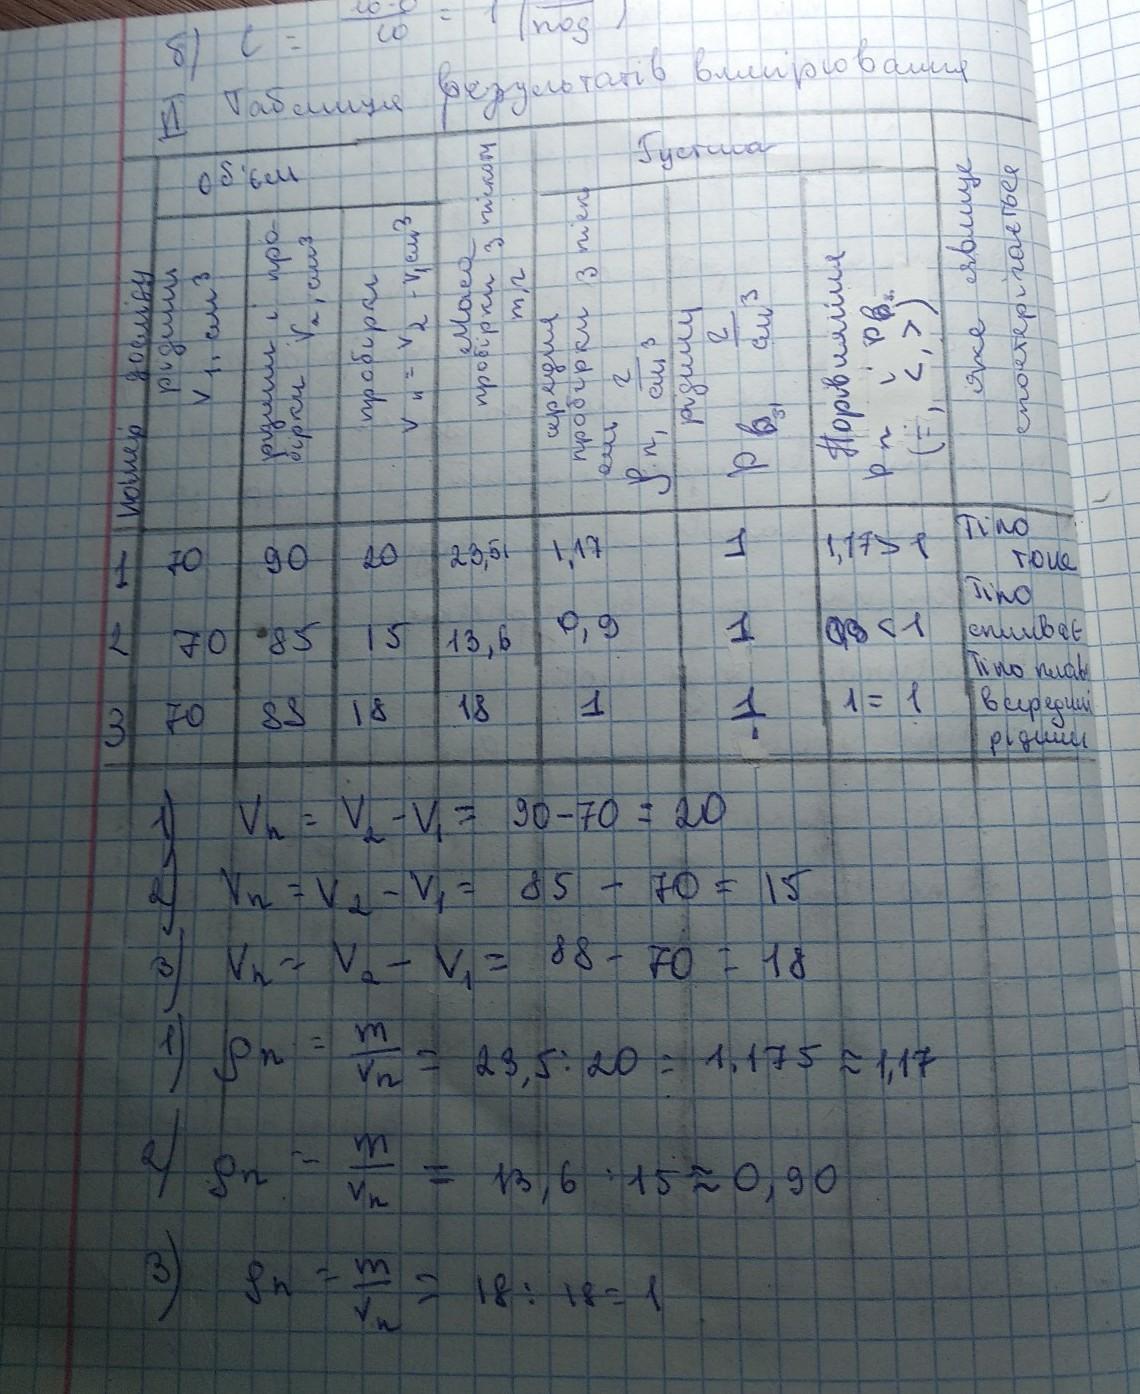 б) C = = 1 (
под
)
II Таблиця результатів вимірювання
Номер досліду
Об'єм
рідини
V1, см3
рідини і про-
бірки V2, см3
пробірки
Vп = V2 - V1 см3
Маса
пробірки з піском
m, г
Густина
середня
пробірки з піск
ом г
ρп, см3
рідини
ρ г
см3
Порівняння
ρп і ρ
(=, <, >)
Яке явище
спостерігається
1 70 90 20 23,5 1,17 1 1,17>1 Тіло
тоне
2 70 85 15 13,6 0,9 1 0,9 < 1 Тіло
спливає
3 70 88 18 18 1 1 1 = 1 Тіло плав
всередині
рідини
1) Vп = V2 - V1 = 90-70 = 20
2) Vп = V2 - V1 = 85 - 70 = 15
3) Vп = V2 - V1 = 88 - 70 = 18
1) ρп = m/Vп = 23,5 : 20 = 1,175 ≈ 1,17
2) ρп = m/Vп = 13,6 : 15 ≈ 0,90
3) ρп = m/Vп = 18 : 18 = 1